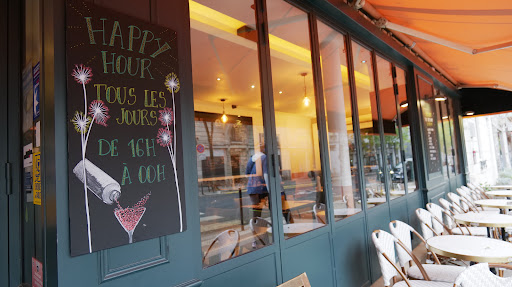 HAPPY
HOUR
TOUS LES
JOURS
DE 16H
À 00H